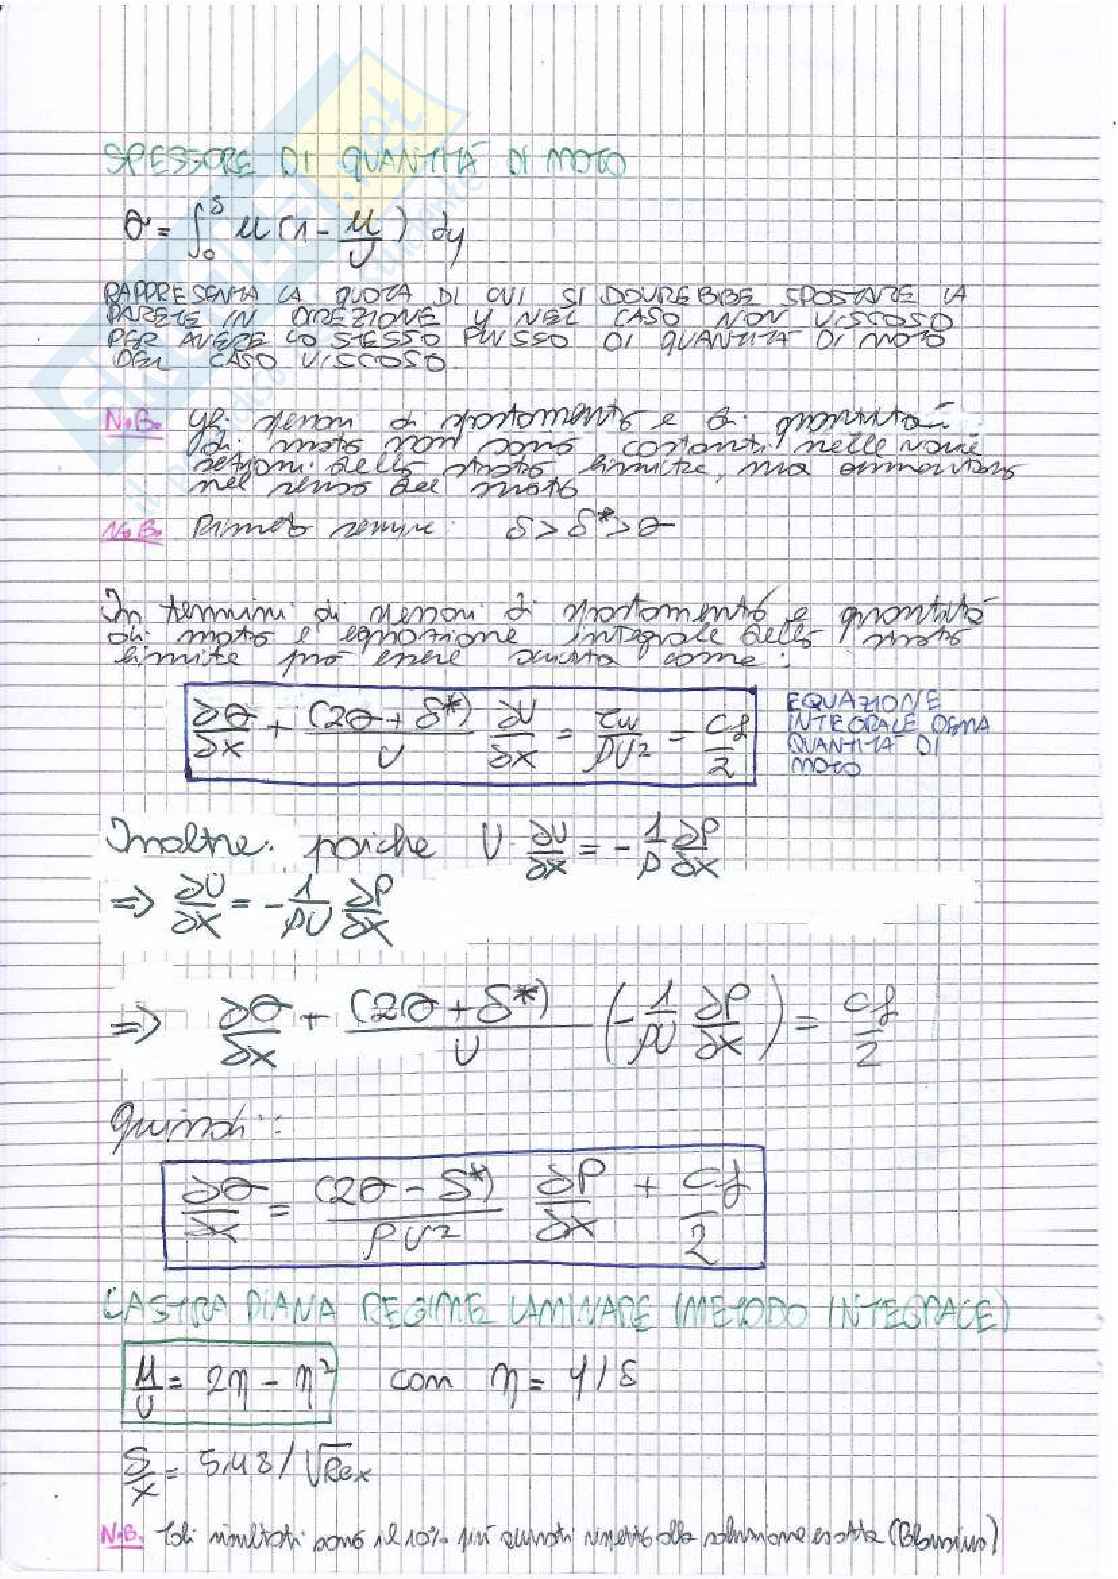 SPESSORE DI QUANTITÀ DI MOTO
θ = ∫₀^δ u (1 - u/U) dy
RAPPRESENTA LA QUOTA DI CUI SI DOVREBBE SPOSTARE LA
PARETE IN DIREZIONE Y NEL CASO NON VISCOSO
PER AVERE LO STESSO FLUSSO DI QUANTITÀ DI MOTO
DEL CASO VISCOSO
N.B. Gli spessori di spostamento e di quantità
di moto non sono costanti nelle varie
sezioni dello strato limite, ma aumentano
nel senso del moto
N.B. sempre: δ > δ* > θ
In termini di spessori di spostamento e quantità
di moto e equazione integrale dello strato
limite può essere scritta come:
∂θ/∂x + (2θ + δ*)/U ∂U/∂x = τw/ρU² = Cf/2
EQUAZIONE
INTEGRALE DELLA
QUANTITÀ DI
MOTO
Inoltre. poiche U ∂U/∂x = - 1/ρ ∂P/∂x
=> ∂U/∂x = - 1/ρU ∂P/∂x
=> ∂θ/∂x + (2θ + δ*)/U (- 1/ρU ∂P/∂x) = Cf/2
Quindi:
∂θ/∂x = (2θ - δ*)/ρU² ∂P/∂x + Cf/2
LASTRA PIANA REGIME LAMINARE (METODO INTEGRALE)
u/U = 2η - η² com η = y/δ
δ/x = 5,48/√Rex
N.B. Tali risultati sono il 10% più rispetto alla soluzione esatta (Blausius)